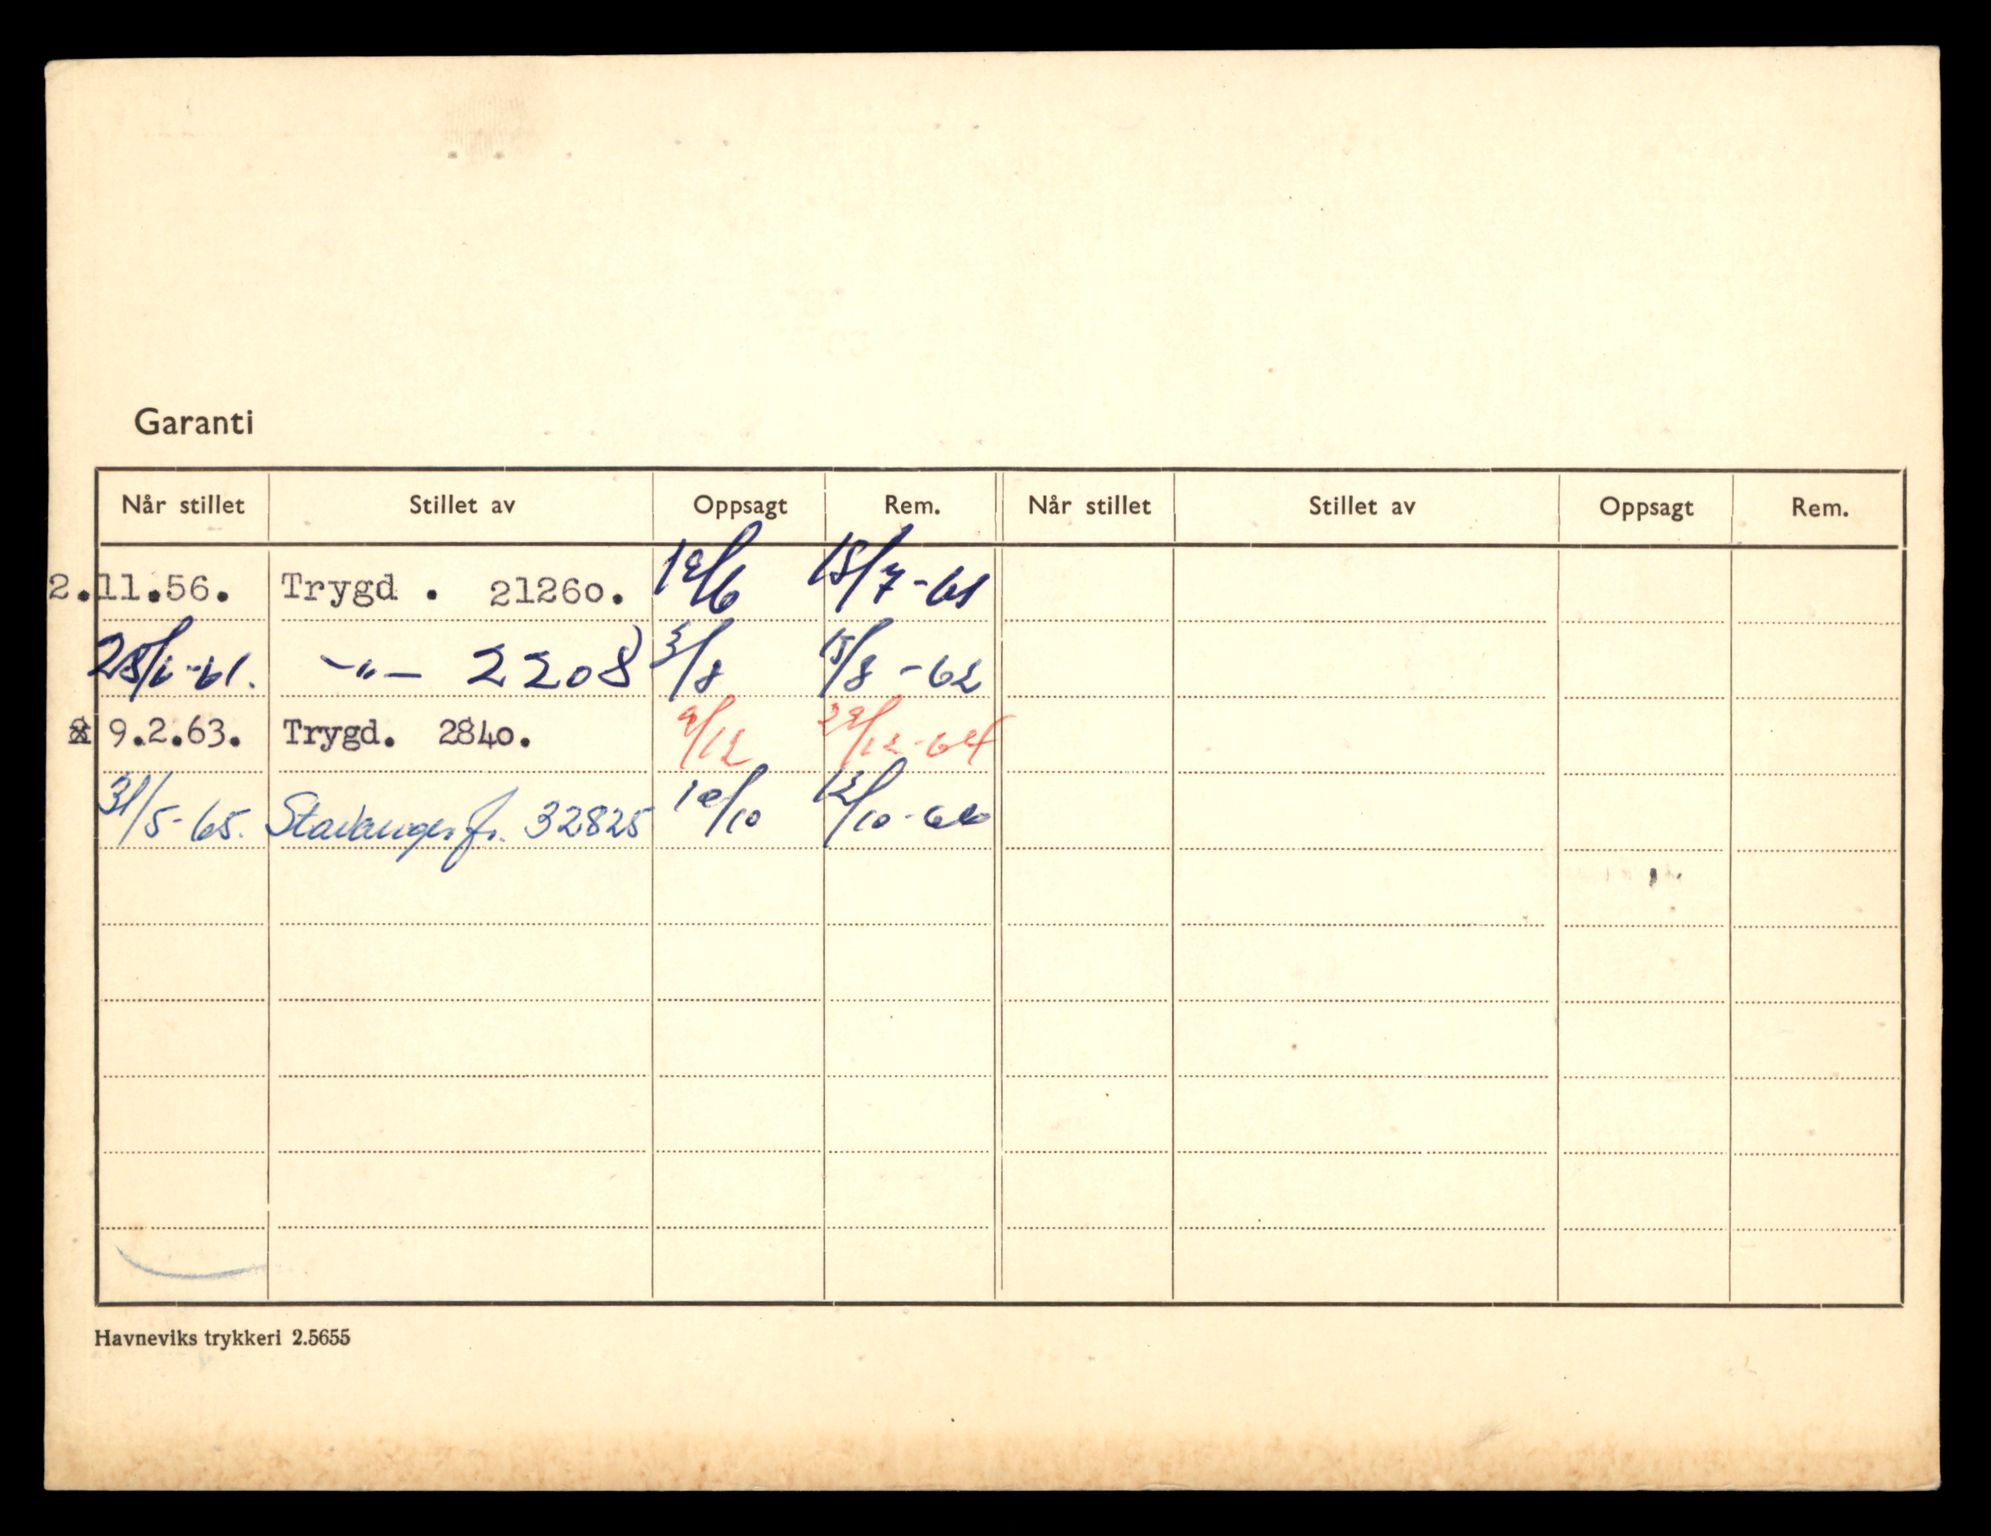 Garanti
Når stillet Stillet av Oppsagt Rem. Når stillet Stillet av Oppsagt Rem.
2.11.56. Trygd . 21260. 19/6 15/7-61
28/6-61. -"- 2208 3/8 15/8-62
9.2.63. Trygd. 2840. 9/12 29/12-64
31/5-65. Stavanger fr. 32825 10/10 12/10-66
Havneviks trykkeri 2.5655